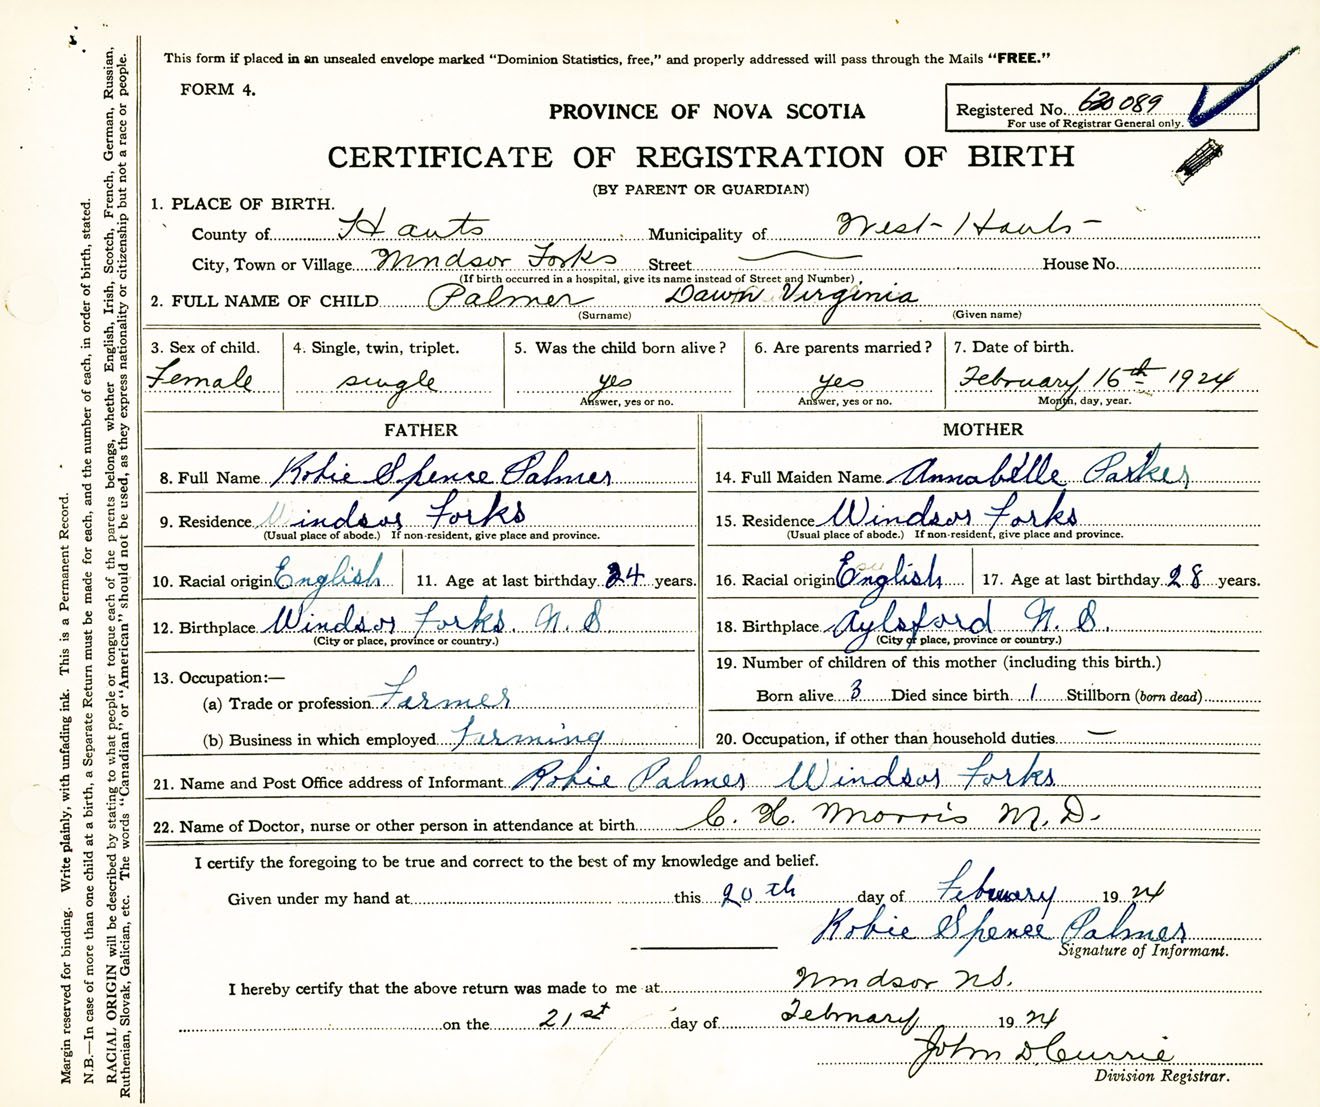 This form if placed in an unsealed envelope marked "Dominion Statistics, free," and properly addressed will pass through the Mails "FREE."
FORM 4.
PROVINCE OF NOVA SCOTIA
Registered No. 620089
For use of Registrar General only.
CERTIFICATE OF REGISTRATION OF BIRTH
(BY PARENT OR GUARDIAN)
1. PLACE OF BIRTH.
County of Hants Municipality of West Hants
City, Town or Village Windsor Forks Street House No.
(If birth occurred in a hospital, give its name instead of Street and Number)
2. FULL NAME OF CHILD Palmer Dawn Virginia
(Surname) (Given name)
3. Sex of child. 4. Single, twin, triplet. 5. Was the child born alive? 6. Are parents married? 7. Date of birth.
Female single yes yes February 16th 1924
Answer, yes or no. Answer, yes or no. Month, day, year.
FATHER MOTHER
8. Full Name Robie Spence Palmer 14. Full Maiden Name Annabelle Parker
9. Residence Windsor Forks 15. Residence Windsor Forks
(Usual place of abode.) If non-resident, give place and province. (Usual place of abode.) If non-resident, give place and province.
10. Racial origin English 11. Age at last birthday 24 years. 16. Racial origin English 17. Age at last birthday 28 years.
12. Birthplace Windsor Forks. N. S. 18. Birthplace Aylsford N. S.
(City or place, province or country.) (City or place, province or country.)
13. Occupation:— 19. Number of children of this mother (including this birth.)
(a) Trade or profession Farmer Born alive 3 Died since birth 1 Stillborn (born dead)
(b) Business in which employed Farming 20. Occupation, if other than household duties —
21. Name and Post Office address of Informant Robie Palmer Windsor Forks
22. Name of Doctor, nurse or other person in attendance at birth C. H. Morris M. D.
I certify the foregoing to be true and correct to the best of my knowledge and belief.
Given under my hand at this 20th day of February 1924
Robie Spence Palmer
Signature of Informant.
I hereby certify that the above return was made to me at Windsor N.S.
on the 21st day of February 1924
John D. Currie
Division Registrar.
Margin reserved for binding. Write plainly, with unfading ink. This is a Permanent Record.
N.B.—In case of more than one child at a birth, a Separate Return must be made for each, and the number of each, in order of birth, stated.
RACIAL ORIGIN will be described by stating to what people or tongue each of the parents belongs, whether English, Irish, Scotch, French, German, Russian,
Ruthenian, Slovak, Galician, etc. The words "Canadian" or "American" should not be used, as they express nationality or citizenship but not a race or people.